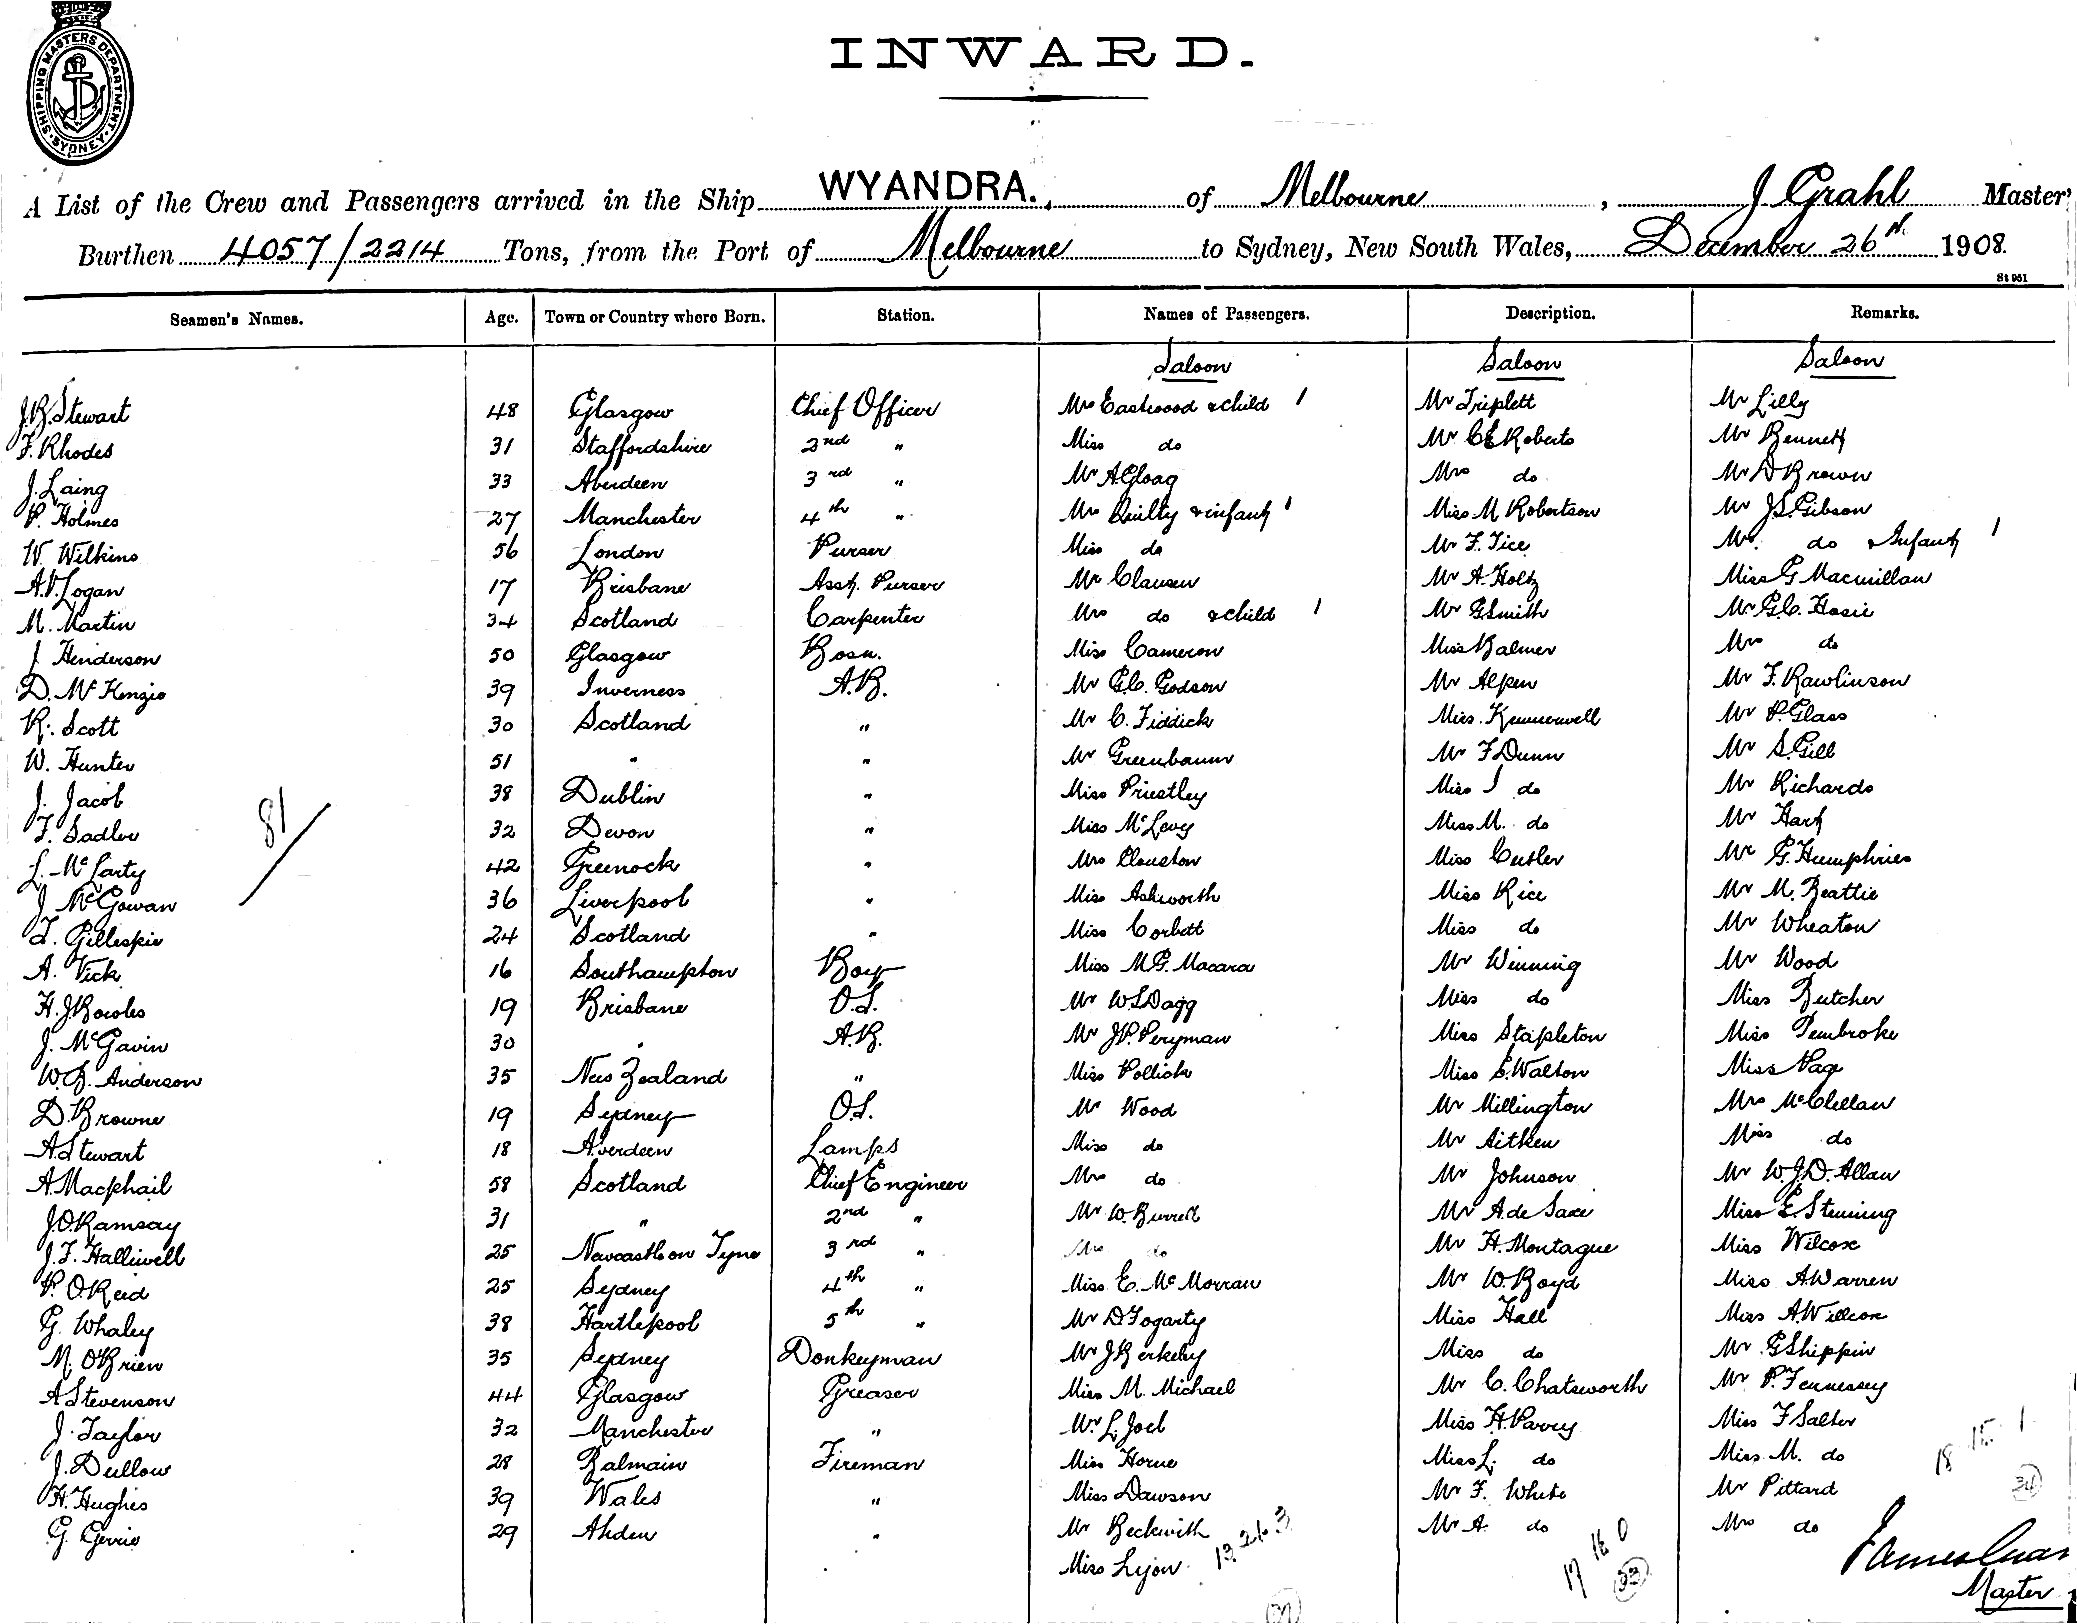 SHIPPING MASTERS DEPARTMENT. SYDNEY.
INWARD.
A List of the Crew and Passengers arrived in the Ship WYANDRA., of Melbourne, J Grahl Master,
Burthen 4057/2214 Tons, from the Port of Melbourne to Sydney, New South Wales, December 26th 1908.
St 951
Seamen's Names. Age. Town or Country where Born. Station. Names of Passengers. Description. Remarks.
Saloon Saloon Saloon
J.B. Stewart 48 Glasgow Chief Officer Mrs Eastwood & child 1 Mr Triplett Mr Lilly
F. Rhodes 31 Staffordshire 2nd " Miss do Mr C E Roberts Mr Bennett
J. Laing 33 Aberdeen 3rd " Mr A Gloag Mrs do Mr D Brown
P. Holmes 27 Manchester 4th " Mrs Quilty & infant 1 Miss M Robertson Mr J.S. Gibson
W. Wilkins 56 London Purser Miss do Mr F. Tice Mrs. do & Infant 1
A.V. Logan 17 Brisbane Asst. Purser Mr Clausen Mr A. Holtz Miss G Macmillan
M. Martin 34 Scotland Carpenter Mrs do & child 1 Mr G Smith Mr G.C. Hosie
J Henderson 50 Glasgow Bosn. Miss Cameron Miss Balmer Mrs do
D. McKenzie 39 Inverness A.B. Mr G.C. Godson Mr Alpen Mr F. Rawlinson
R. Scott 30 Scotland " Mr C. Fiddick Miss. Mr P. Glass
W. Hunter 51 " " Mr Greenbaum Mr F Dunn Mr S. Gill
J. Jacob 38 Dublin " Miss Priestley Miss I do Mr Richards
F. Sadler 32 Devon " Miss McLevy Miss M. do Mr Hart
L. McCarty 42 Greenock " Mrs Clouston Miss Cutler Mr G. Humphries
81/
J McGowan 36 Liverpool " Miss Ashworth Miss Rice Mr M. Beattie
T. Gillespie 24 Scotland " Miss Corbett Miss do Mr Wheaton
A. Vick 16 Southampton Boy Miss M.G. Macara Mr Winning Mr Wood
H. J Bowles 19 Brisbane O.S. Mr W S Dagg Miss do Miss Butcher
J. McGavin 30 " A.B. Mr J.P. Peryman Miss Stapleton Miss Pembroke
W B. Anderson 35 New Zealand " Miss Pollick Miss E. Walton Miss Page
D. Browne 19 Sydney O.S. Mr Wood Mr Millington Mrs McClellan
A Stewart 18 Aberdeen Lamps Miss do Mr Aitken Miss do
A. Macphail 58 Scotland Chief Engineer Mrs do Mr Johnson Mr W.J.D. Allan
J.O. Ramsay 31 " 2nd " Mr W. Burrell Mr A. de Saxe Miss E. Stenning
J. F. Halliwell 25 Newcastle on Tyne 3rd " Mrs do Mr H. Montague Miss Wilcox
P. O Reid 25 Sydney 4th " Miss E. McMorran Mr W. Boyd Miss A Warren
G. Whaley 38 Hartlepool 5th " Mr D Fogarty Miss Hall Miss A. Willcox
M. O'Brien 35 Sydney Donkeyman Mr J Berkeley Miss do Mr G Shippin
A Stevenson 44 Glasgow Greaser Miss M. Michael Mr C. Chatsworth Mr P. Fennessey
J. Taylor 32 Manchester " Mr L. Joel Miss H. Parry Miss F Salter
J. Dullow 28 Balmain Fireman Miss Horne Miss L. do Miss. M. do
18 15 1
H. Hughes 39 Wales " Miss Dawson Mr F. White Mr Pittard
34
G. Gerrie 29 " Mr Beckwith Mr A. do Mrs do
13 21 3 17 16 0
Miss Lyon 33
James
Master